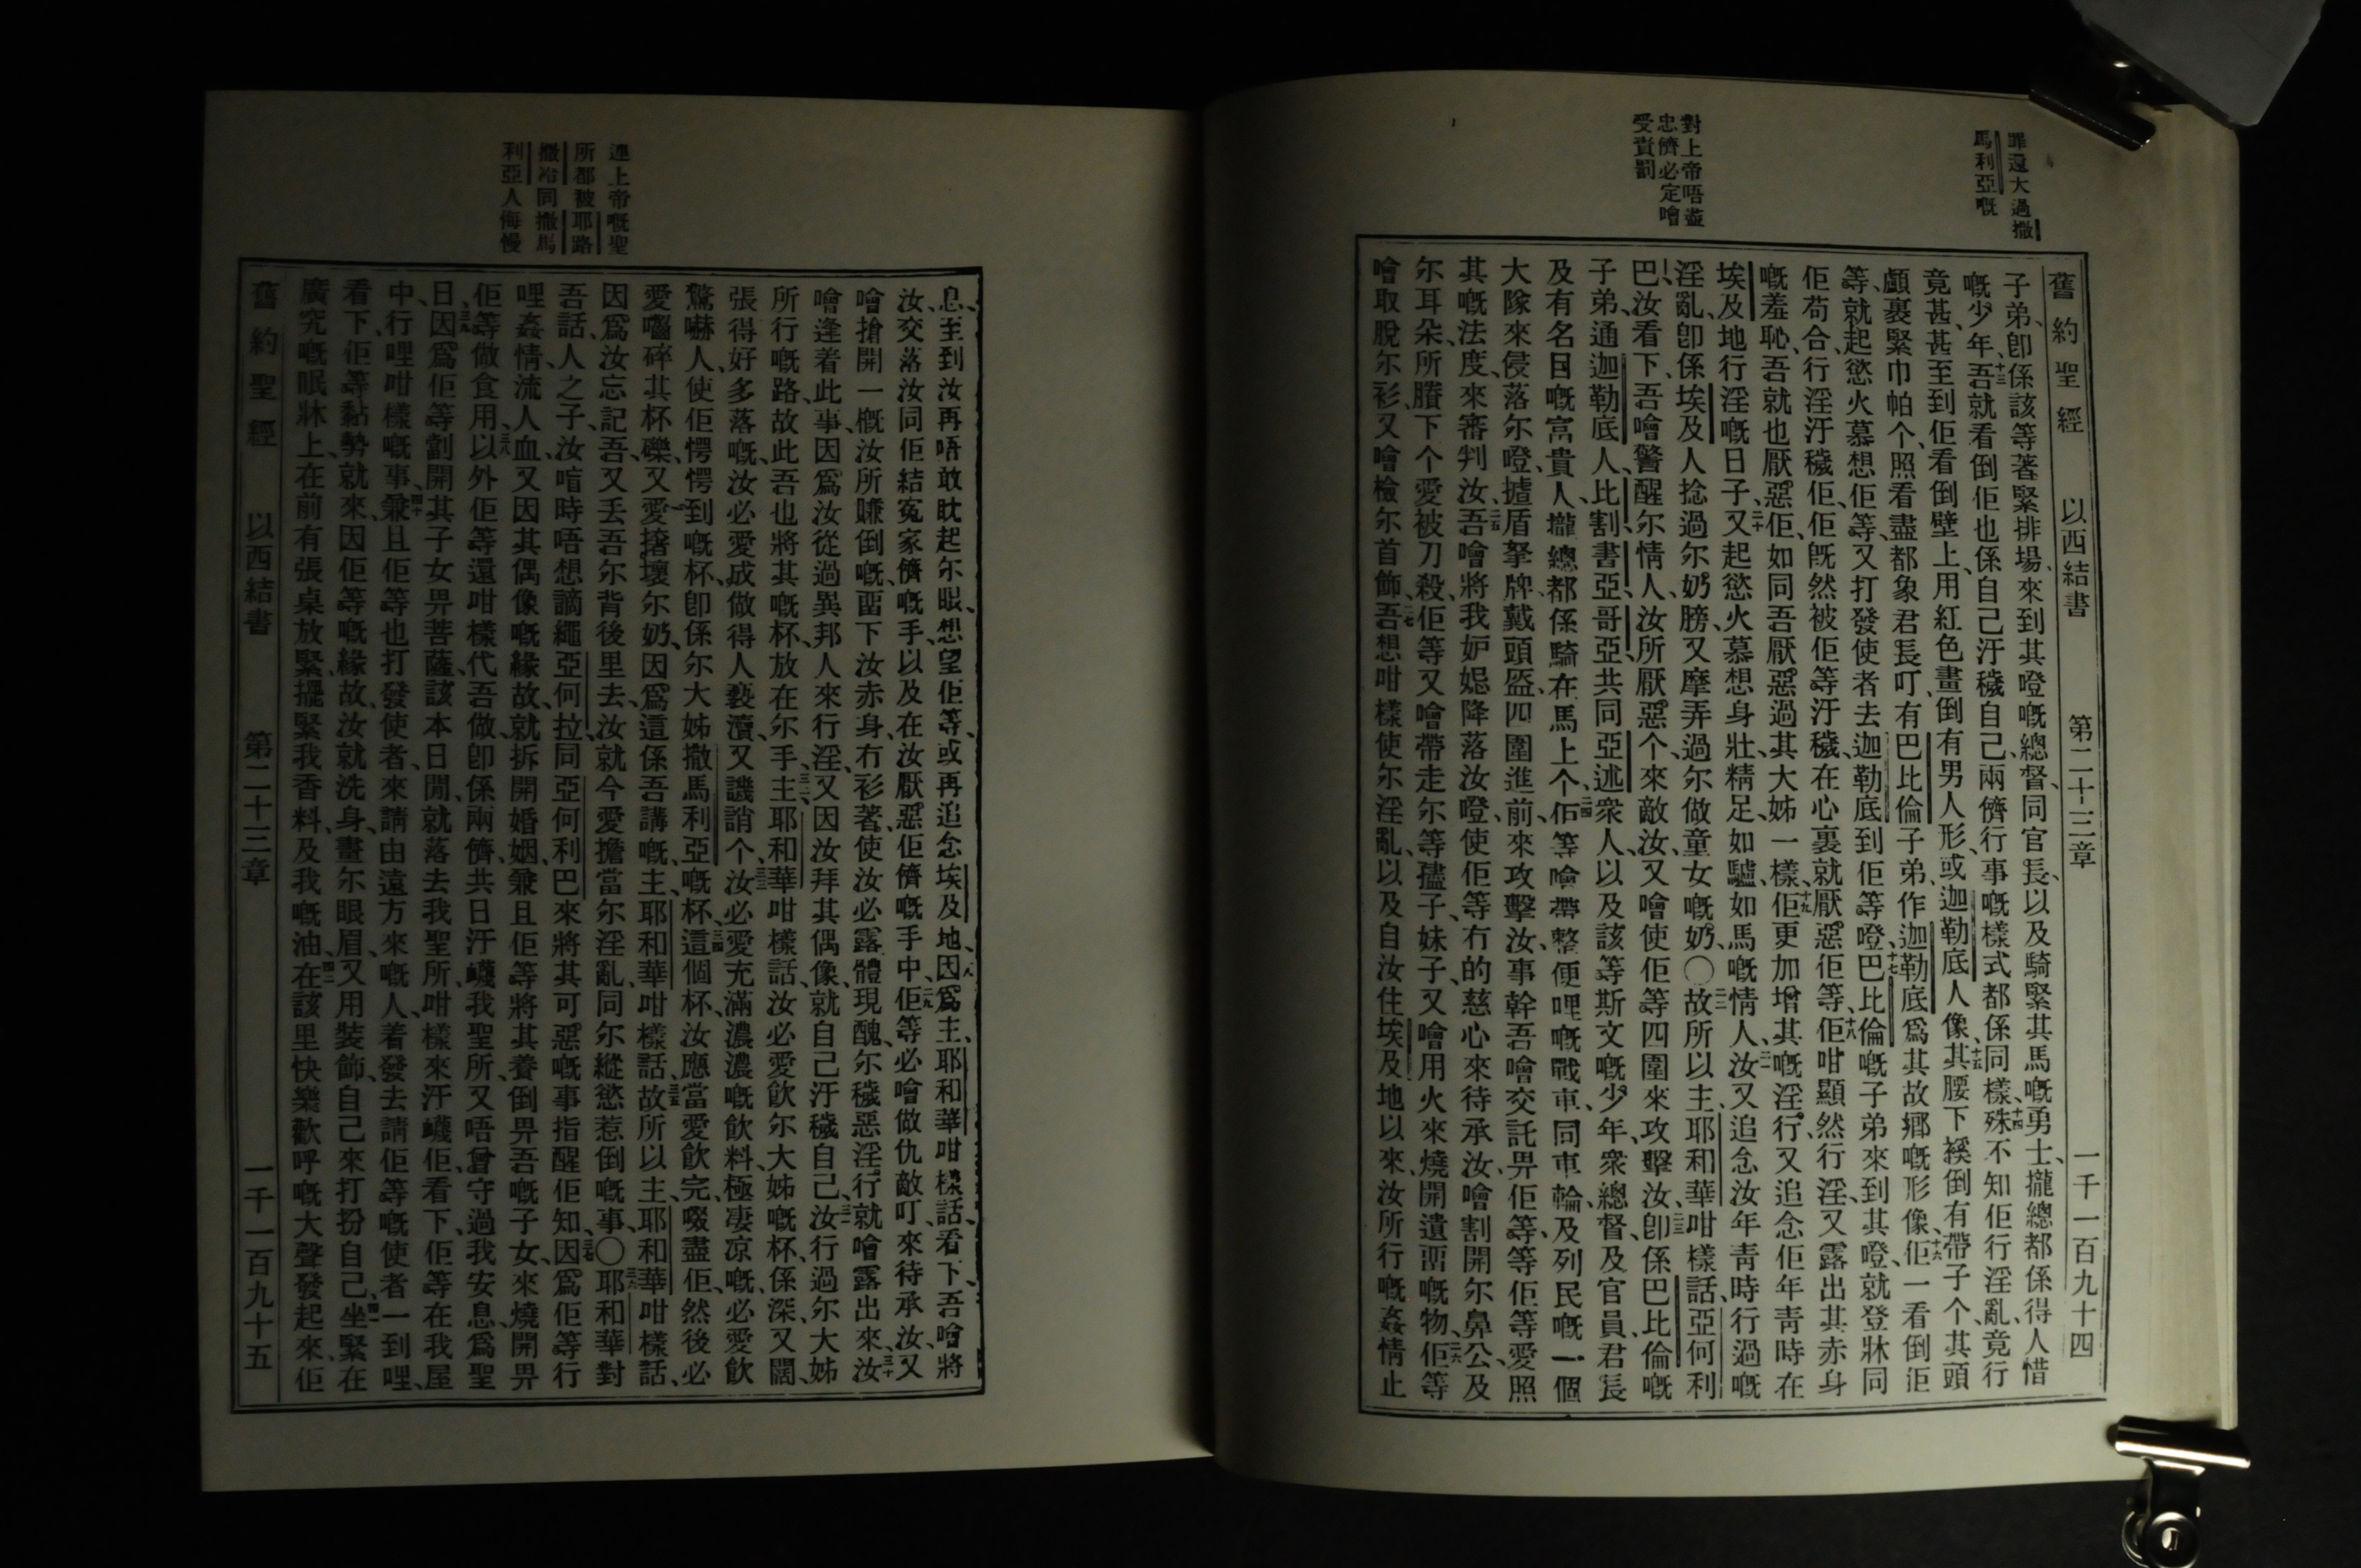 罪還大過撒
馬利亞嘅
對上帝唔盡
忠儕必定噲
受責罰
舊約聖經 以西結書 第二十三章 一千一百九十四
子弟、卽係該等著緊排場、來到其噔嘅總督、同官長、以及騎緊其馬嘅勇士、攏總都係得人惜
嘅少年、十三吾就看倒佢也係自己汙穢自己、兩儕行事嘅樣式都係同樣、十四殊不知佢行淫亂、竟行
竟甚、甚至到佢看倒壁上、用紅色畫倒有男人形、或迦勒底人像、十五其腰下緩倒有帶子个、其頭
顱裹緊巾帕个、照看盡都象君長叮、有巴比倫子弟、作迦勒底爲其故鄉嘅形像、十六佢一看倒佢
等、就起慾火慕想佢等、又打發使者去迦勒底到佢等噔、十七巴比倫嘅子弟來到其噔、就登牀同
佢苟合、行淫汙穢佢、佢旣然被佢等汙穢、在心裏就厭惡佢等、十八佢咁顯然行淫、又露出其赤身
嘅羞恥、吾就也厭惡佢、如同吾厭惡過其大姊一樣、十九佢更加增其嘅淫行、又追念佢年靑時在
埃及地行淫嘅日子、二十又起慾火慕想身壯、精足如驢、如馬嘅情人、二一汝又追念汝年靑時行過嘅
淫亂、卽係埃及人捻過尔奶膀、又摩弄過尔做童女嘅奶、〇二二故所以主、耶和華咁樣話、亞何利
巴、汝看下、吾噲警醒尔情人、汝所厭惡个、來敵汝、又噲使佢等四圍來攻擊汝、二三卽係巴比倫嘅
子弟、通迦勒底人、比割、書亞、哥亞、共同亞述衆人、以及該等斯文嘅少年、衆總督、及官員、君長
及有名目嘅富貴人、攏總都係騎在馬上个、二四佢等噲帶整便哩嘅戰車、同車輪、及列民嘅一個
大隊來侵落尔噔、摣盾拏牌、戴頭盔、四圍進前來攻擊汝、事幹吾噲交託畀佢等、等佢等愛照
其嘅法度、來審判汝、二五吾噲將我妒㥀降落汝噔、使佢等冇的慈心來待承汝、噲割開尔鼻公、及
尔耳朵、所賸下个愛被刀殺、佢等又噲帶走尔等孻子、妹子、又噲用火來燒開遺畱嘅物、二六佢等
噲取脫尔衫、又噲檢尔首飾、二七吾想咁樣使尔淫亂、以及自汝住埃及地以來、汝所行嘅姦情止
連上帝嘅聖
所都被耶路
撒冷同撒馬
利亞人侮慢
息、至到汝再唔敢眈起尔眼、想望佢等、或再追念埃及地、二八因爲主、耶和華咁樣話、看下、吾噲將
汝交落汝同佢結冤家儕嘅手、以及在汝厭惡佢儕嘅手中、二九佢等必噲做仇敵叮、來待承汝、又
噲搶開一槪汝所賺倒嘅、畱下汝赤身、冇衫著、使汝必露體現醜、尔穢惡淫行、就噲露出來、三十汝
噲逢着此事、因爲汝從過異邦人來行淫、又因汝拜其偶像、就自己汙穢自己、三一汝行過尔大姊
所行嘅路、故此吾也將其嘅杯、放在尔手、三二主、耶和華咁樣話、汝必愛飮尔大姊嘅杯、係深、又闊、
張得好多落嘅、汝必愛成做得人褻瀆、又譏誚个、三三汝必愛充滿濃濃嘅飮料、極凄凉嘅、必愛飮
驚嚇人、使佢愕愕到嘅杯、卽係尔大姊撒馬利亞嘅杯、三四這個杯、汝應當愛飮完、啜盡佢、然後必
愛嚙碎其杯礫、又愛撦壞尔奶、因爲這係吾講嘅、主、耶和華咁樣話、三五故所以主、耶和華咁樣話、
因爲汝忘記吾、又丢吾尔背後里去、汝就今愛擔當尔淫亂、同尔縱慾惹倒嘅事、〇三六耶和華對
吾話、人之子、汝喑時唔想謫繩亞何拉、同亞何利巴、來將其可惡嘅事、指醒佢知、三七因爲佢等行
哩姦情、流人血、又因其偶像嘅緣故、就拆開婚姻、兼且佢等將其養倒畀吾嘅子女、來燒開畀
佢等做食用、三八以外佢等還咁樣代吾做、卽係兩儕、共日汙衊我聖所、又唔曾守過我安息、爲聖
日、三九因爲佢等劏開其子女畀菩薩、該本日閒、就落去我聖所、咁樣來汙衊佢、看下、佢等在我屋
中、行哩咁樣嘅事、四十兼且佢等也打發使者、來請由遠方來嘅人、着發去請佢等嘅使者一到哩、
看下、佢等黏勢就來、因佢等嘅緣故、汝就洗身、畫尔眼眉、又用裝飾、自己來打扮自己、四一坐緊在
廣究嘅眠牀上、在前有張桌放緊、擺緊我香料、及我嘅油、四二在該里快樂歡呼嘅大聲發起來、佢
舊約聖經 以西結書 第二十三章 一千一百九十五